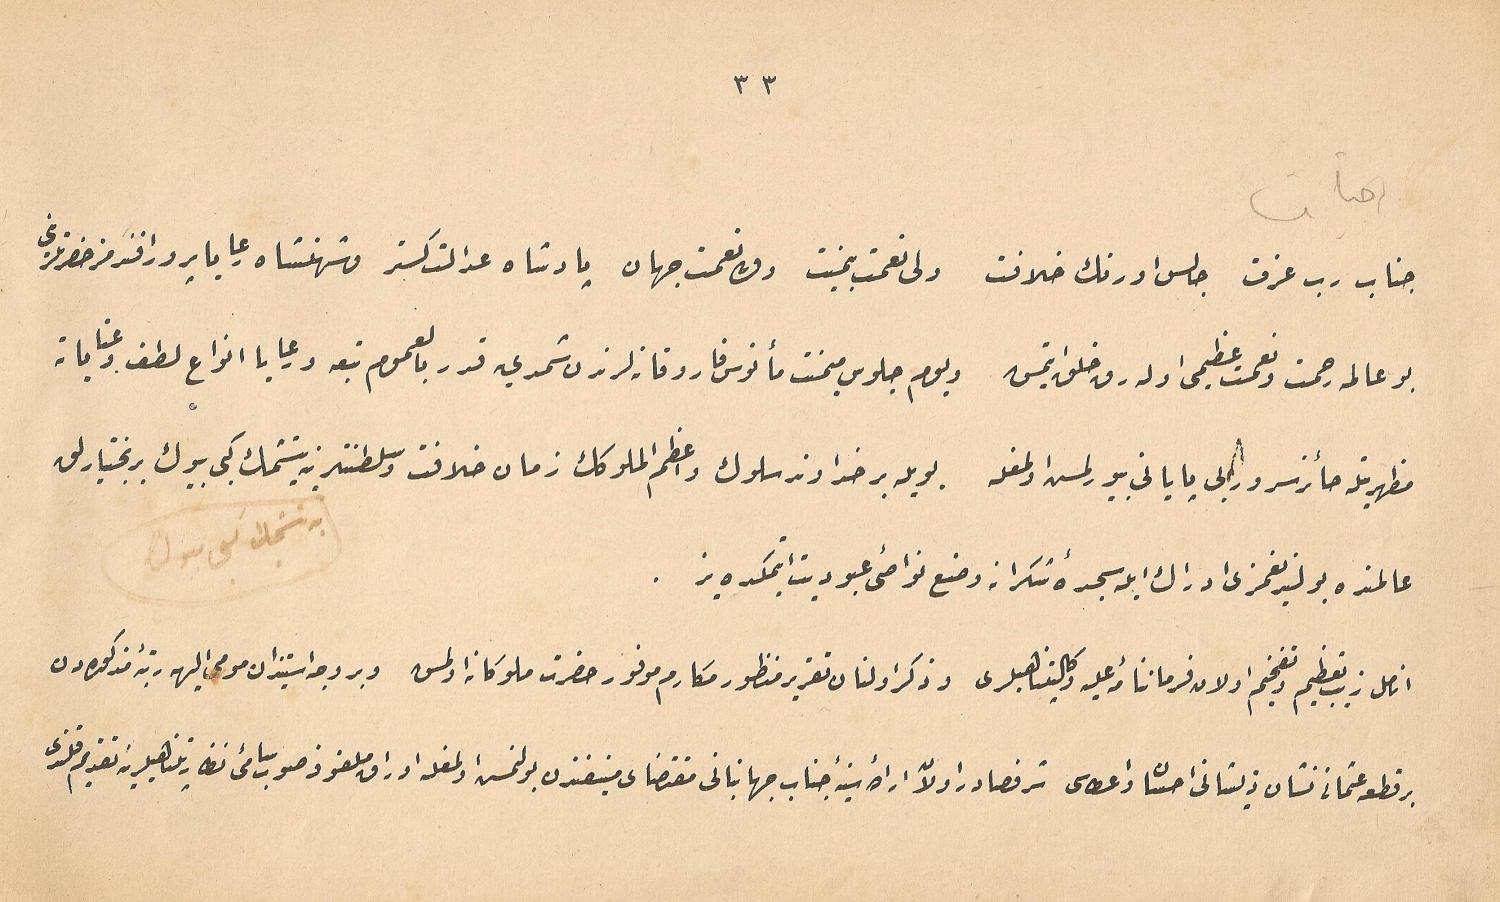 ٣٣
جناب رب عزت جالس اورنك خلافت ولی نعمت بیمنت جهان پادشاه عدالتکستر وشهنشاه رعایاپرور افندمز حضرتلرینی
بو عالمه رحمت ونعمت عظیمی اوله رق خلق ایتمش ویوم جلوس میمنت مأنوس فاروقانه لرندن شمدی یه قدر بالعموم تبعه ورعایا انواع لطف وعنایاته
مظهریتله حائز سرور بی پایانی بیورلمش اولمغله بویله بر خداوند سلوك واعظم الملوکك زمان خلافت وسلطنتلرینه یتشمك کبی بیوك بر بختیارلق
یتشمك کبی بیوك
عالمنده بولندیغمزی ادراك ایله سجدهٔ شکرانه وضع نواصئ عبودیت ایتمکده یز .
انامل زیب تعظیم وتفخیم اولان فرماننامهٔ علیهٔ وکالتپناهیلری وذکر اولنان تقریر منظور مکارم موفور حضرت ملوکانه اولمش وبر وجه استیذان مومی الیهه رتبهٔ مذکوره دن
بر قطعه عثمانی نشان ذیشانی احسان واعطاسی شرفصادر اولان ارادهٔ سنیهٔ جناب جهانبانی مقتضای منیفندن بولنمش اولمغله اوراق ملفوفه صوب سامئ نظارتپناهیلرینه تقدیم قلندی